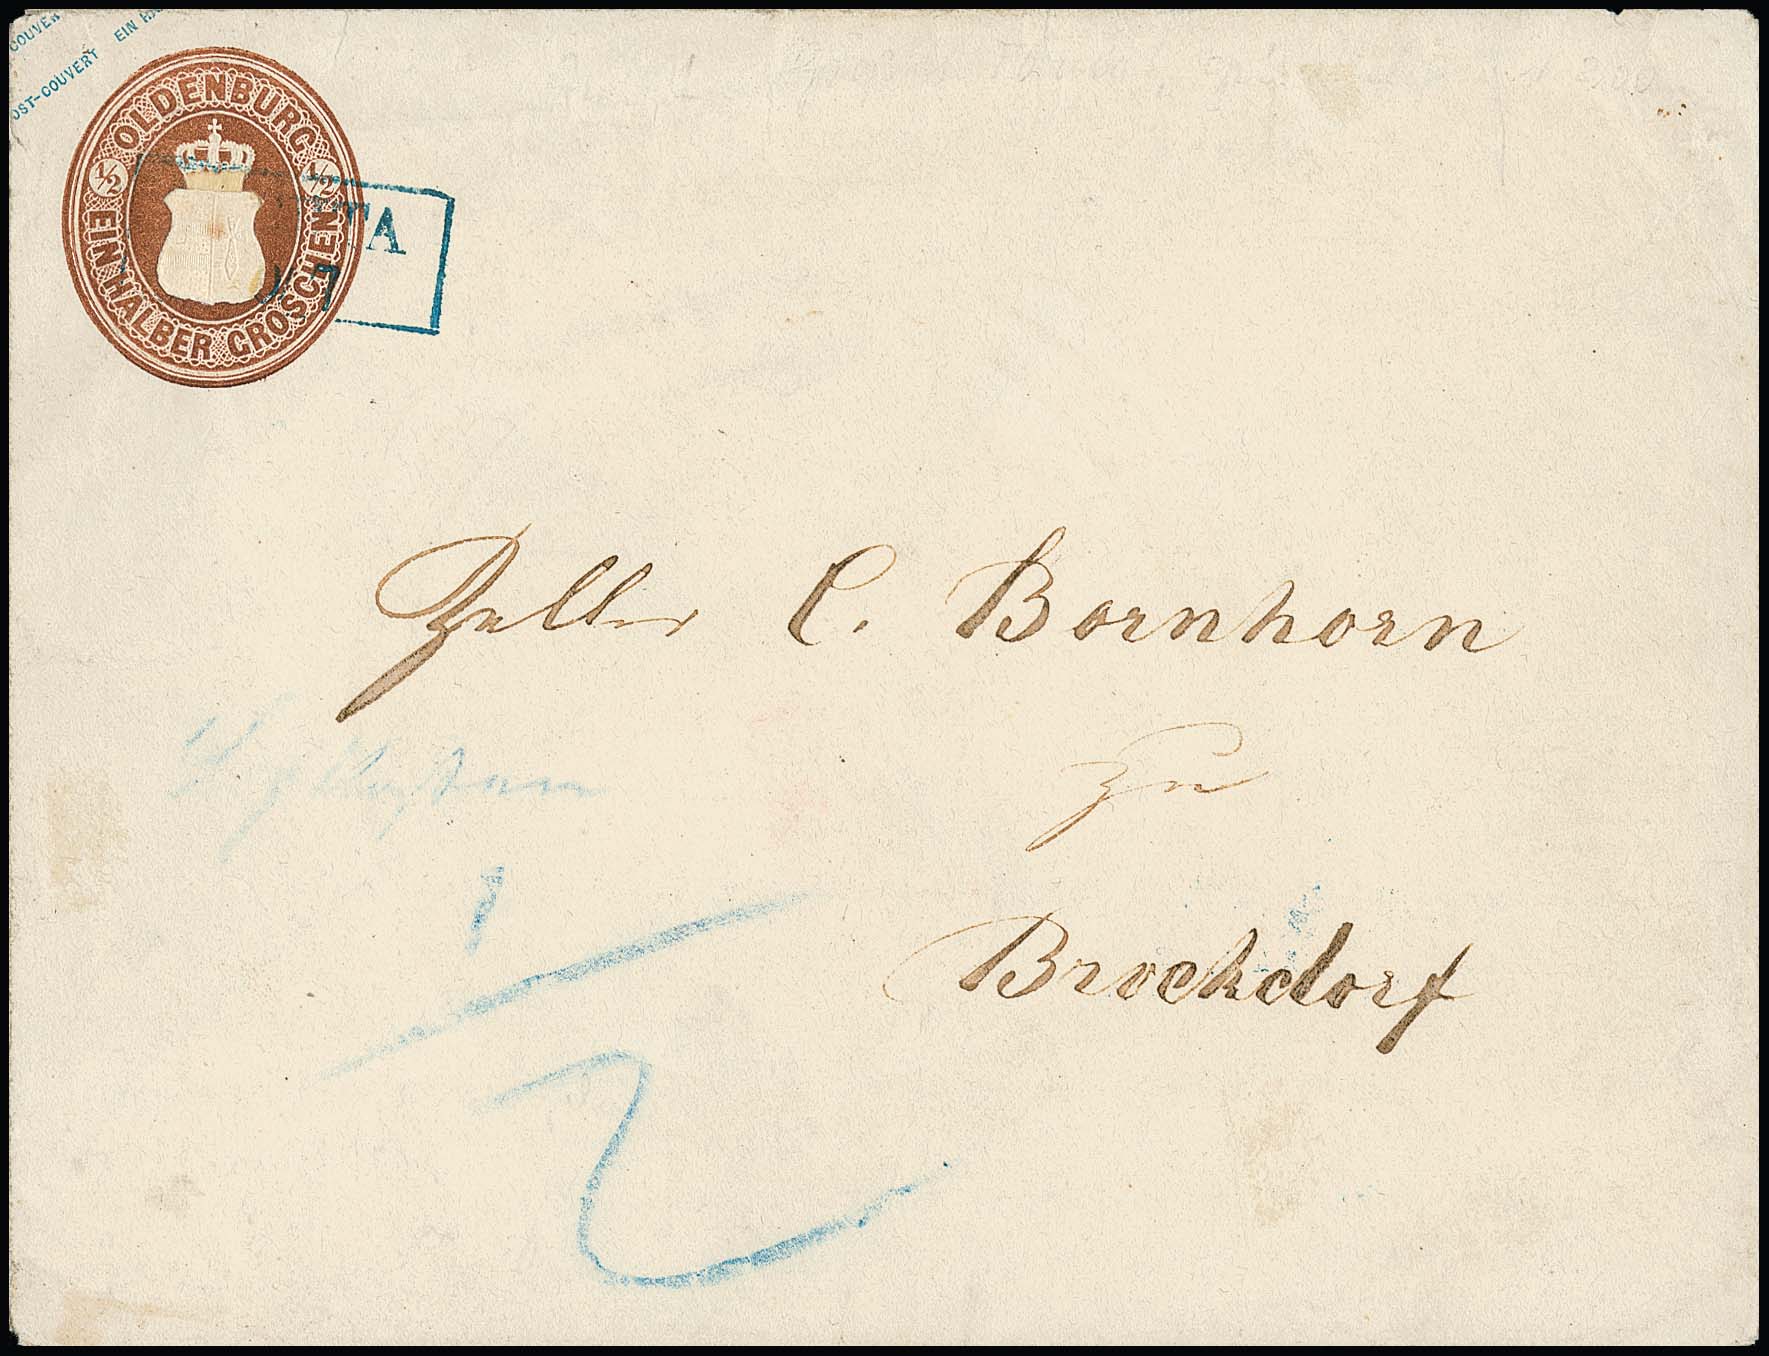 COUVER
OST-COUVERT EIN HA
OLDENBURG
½ ½
EIN HALBER GROSCHEN
TA
7
Zeller C. Bornhorn
zu
Brockdorf
1/2